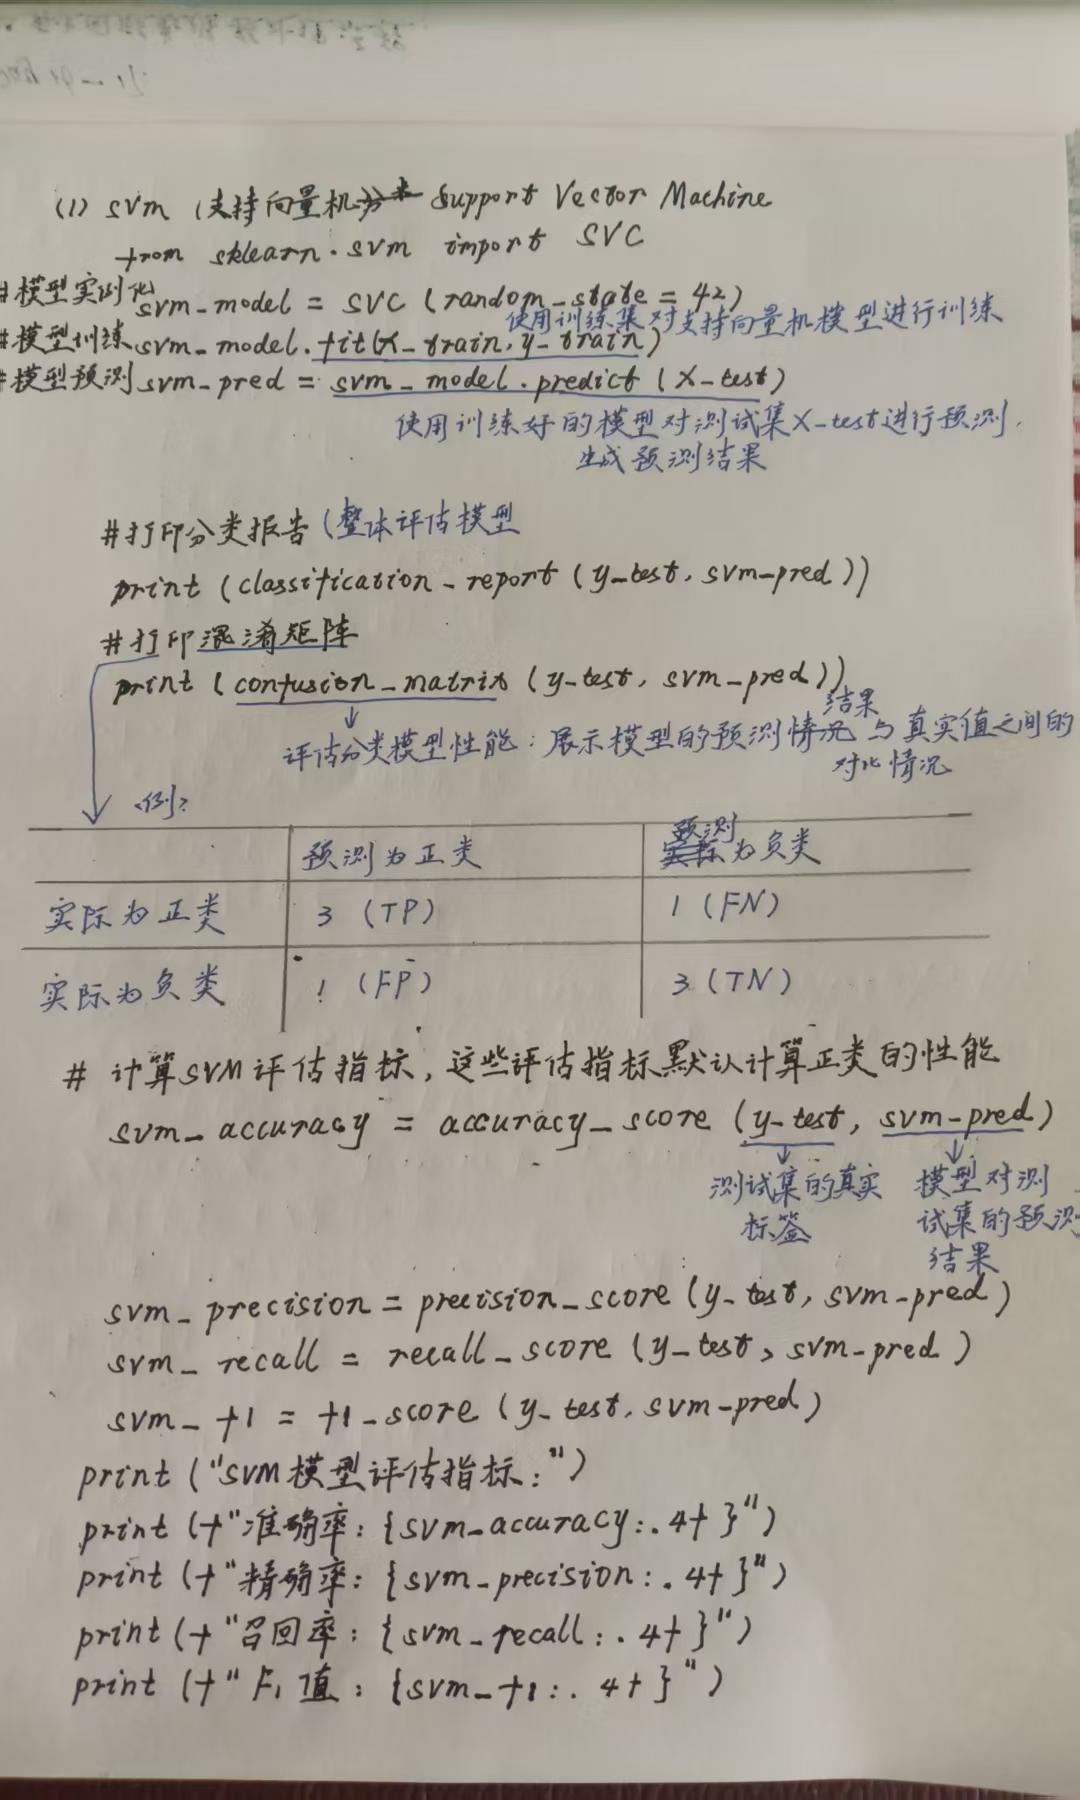 (1) SVM (支持向量机 Support Vector Machine
from sklearn.svm import SVC
#模型实例化 svm_model = SVC (random_state = 42)
使用训练集对支持向量机模型进行训练
#模型训练 svm_model.fit(X_train, y_train)
#模型预测 svm_pred = svm_model.predict (X_test)
使用训练好的模型对测试集X_test进行预测,
生成预测结果
#打印分类报告 (整体评估模型
print (classification_report (y_test, svm_pred))
#打印混淆矩阵
print (confusion_matrix (y_test, svm_pred))
评估分类模型性能: 展示模型的预测情况结果与真实值之间的
对比情况
例:
预测为正类 预测为负类
实际为正类 3 (TP) 1 (FN)
实际为负类 1 (FP) 3 (TN)
# 计算SVM评估指标, 这些评估指标默认计算正类的性能
svm_accuracy = accuracy_score (y_test, svm_pred)
测试集的真实
标签
模型对测
试集的预测
结果
svm_precision = precision_score (y_test, svm_pred)
svm_recall = recall_score (y_test, svm_pred)
svm_f1 = f1_score (y_test, svm_pred)
print ("SVM模型评估指标:")
print (f"准确率: {svm_accuracy:.4f}")
print (f"精确率: {svm_precision:.4f}")
print (f"召回率: {svm_recall:.4f}")
print (f"F1值: {svm_f1:.4f}")